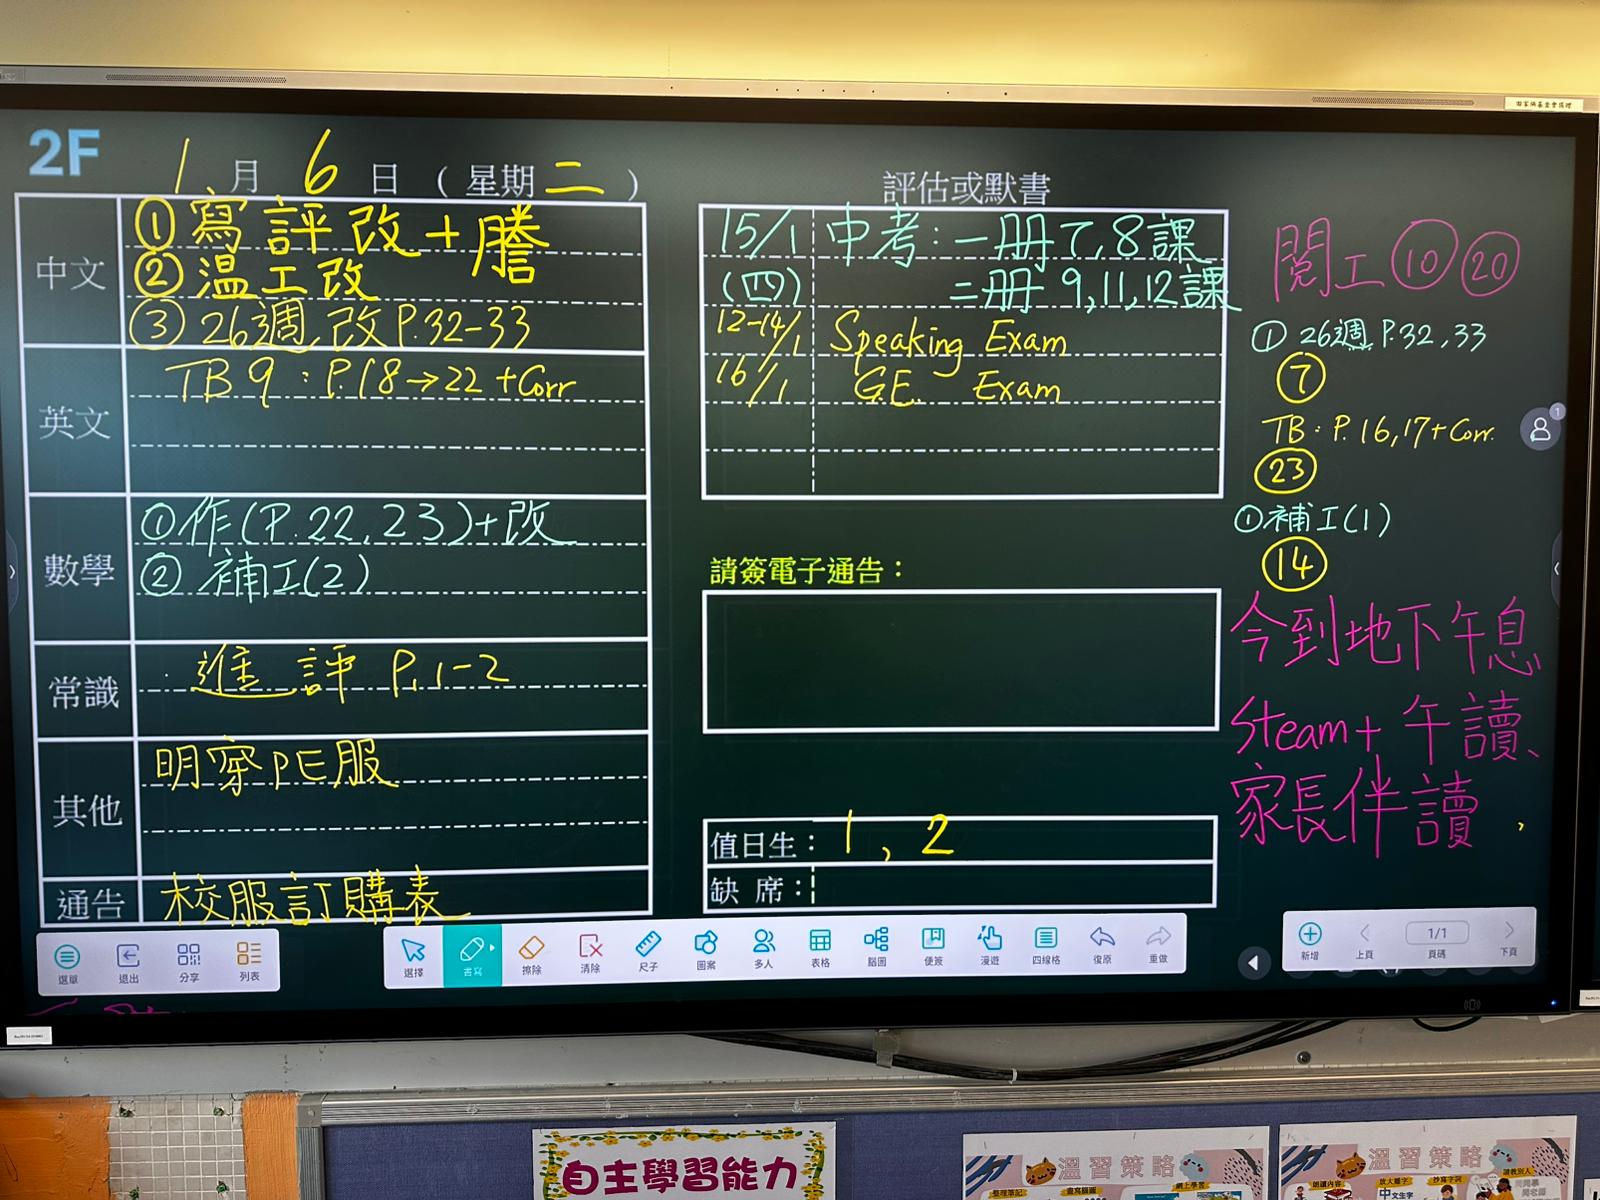 2F
1月6日(星期二)
中文
①寫評改+謄
②温工改
③26週,改P.32-33
英文
TB9:P.18→22+Corr
數學
①作(P.22,23)+改
②補工(2)
常識
進評 P.1-2
其他
明穿PE服
通告
校服訂購表
評估或默書
15/1 中考:一册7,8課
(四) 二册9,11,12課
12-14/1 Speaking Exam
16/1 G.E. Exam
請簽電子通告:
值日生:1,2
缺席:
閱工⑩⑳
①26週P.32,33
⑦
TB:P.16,17+Corr.
㉓
①補工(1)
⑭
今到地下午息
Steam+午讀、
家長伴讀
1
選單
退出
分享
列表
選擇
書寫
擦除
清除
尺子
圖案
多人
表格
腦圖
便簽
漫遊
四線格
復原
重做
新增
上頁
1/1
頁碼
下頁
自主學習能力
溫習策略
整理筆記
畫腦圖
網上學習
溫習策略
朗讀內容
放大種字
抄寫字詞
請教別人
中文生字